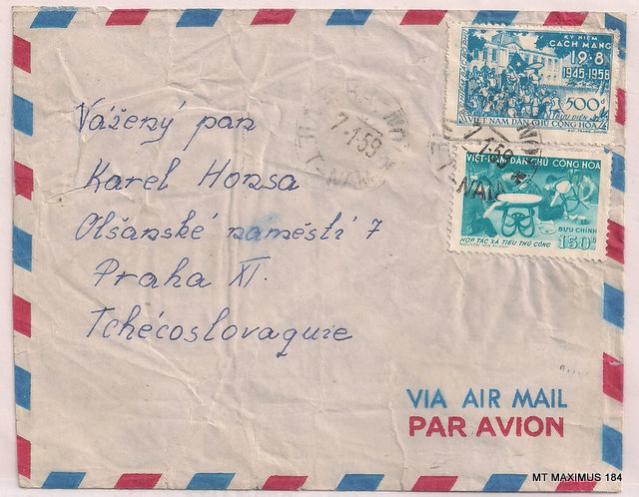 KỶ NIỆM
CÁCH MẠNG
19-8
1945-1958
500đ
BƯU ĐIỆN
VIỆT NAM DÂN CHỦ CỘNG HÒA
7-1-59
NAM
7-1-59
NAM
VIỆT-NAM DÂN CHỦ CỘNG HÒA
BƯU CHÍNH
150đ
HỢP TÁC XÃ TIỂU THỦ CÔNG
Vážený pan
Karel Honsa
Olšanské náměstí 7
Praha XI.
Tchécoslovaquie
VIA AIR MAIL
PAR AVION
MT MAXIMUS 184